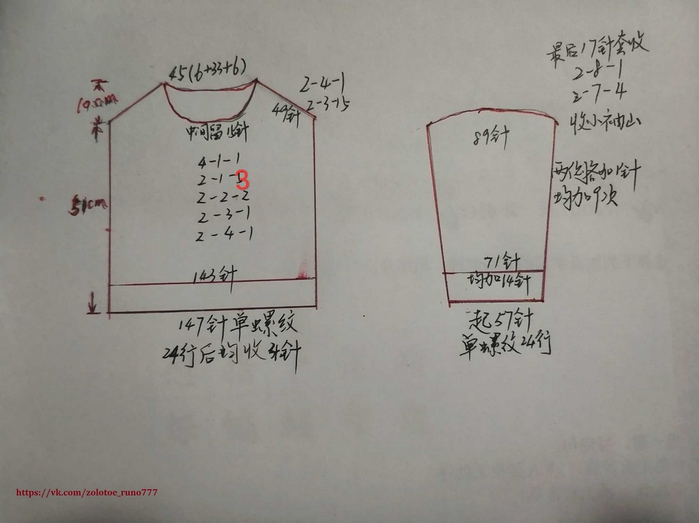 45(6+33+6)
2-4-1
2-3-15
49针
中间留15针
4-1-1
2-1-3
2-2-2
2-3-1
2-4-1
51cm
143针
147针单螺纹
24行后均收4针
最后17针套收
2-8-1
2-7-4
收小袖山
89针
加1针
均加9次
71针
均加14针
起57针
单螺纹24行
https://vk.com/zolotoe_runo777